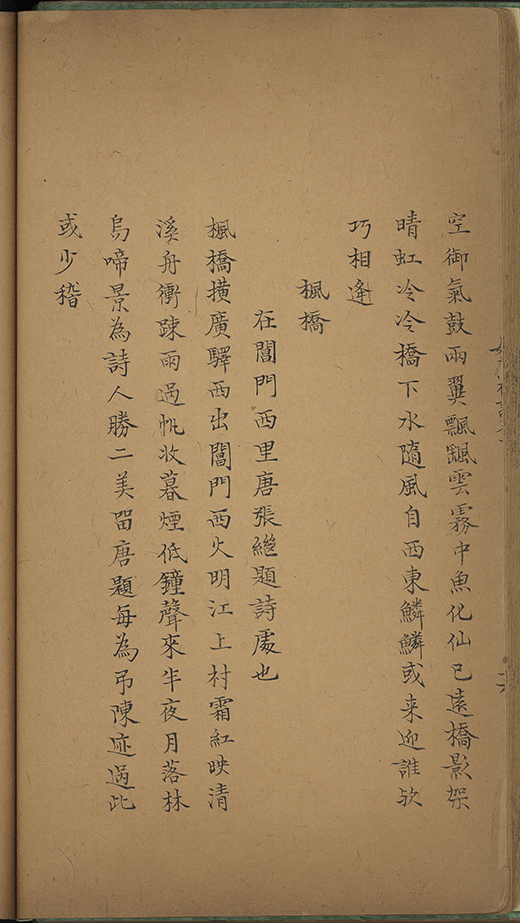 空御氣鼓兩翼飄颻雲霧中魚化仙已遠橋影架
晴虹冷冷橋下水隨風自西東鱗鱗或来迎誰欤
巧相逢
楓橋
在閶門西里唐張繼題詩處也
楓橋摗廣驛西出閶門西火明江上村霜紅映清
溪舟衝疎雨過帆收暮煙低鐘聲來半夜月落林
烏啼景為詩人勝二美畱唐題每為弔陳迹過此
或少稽